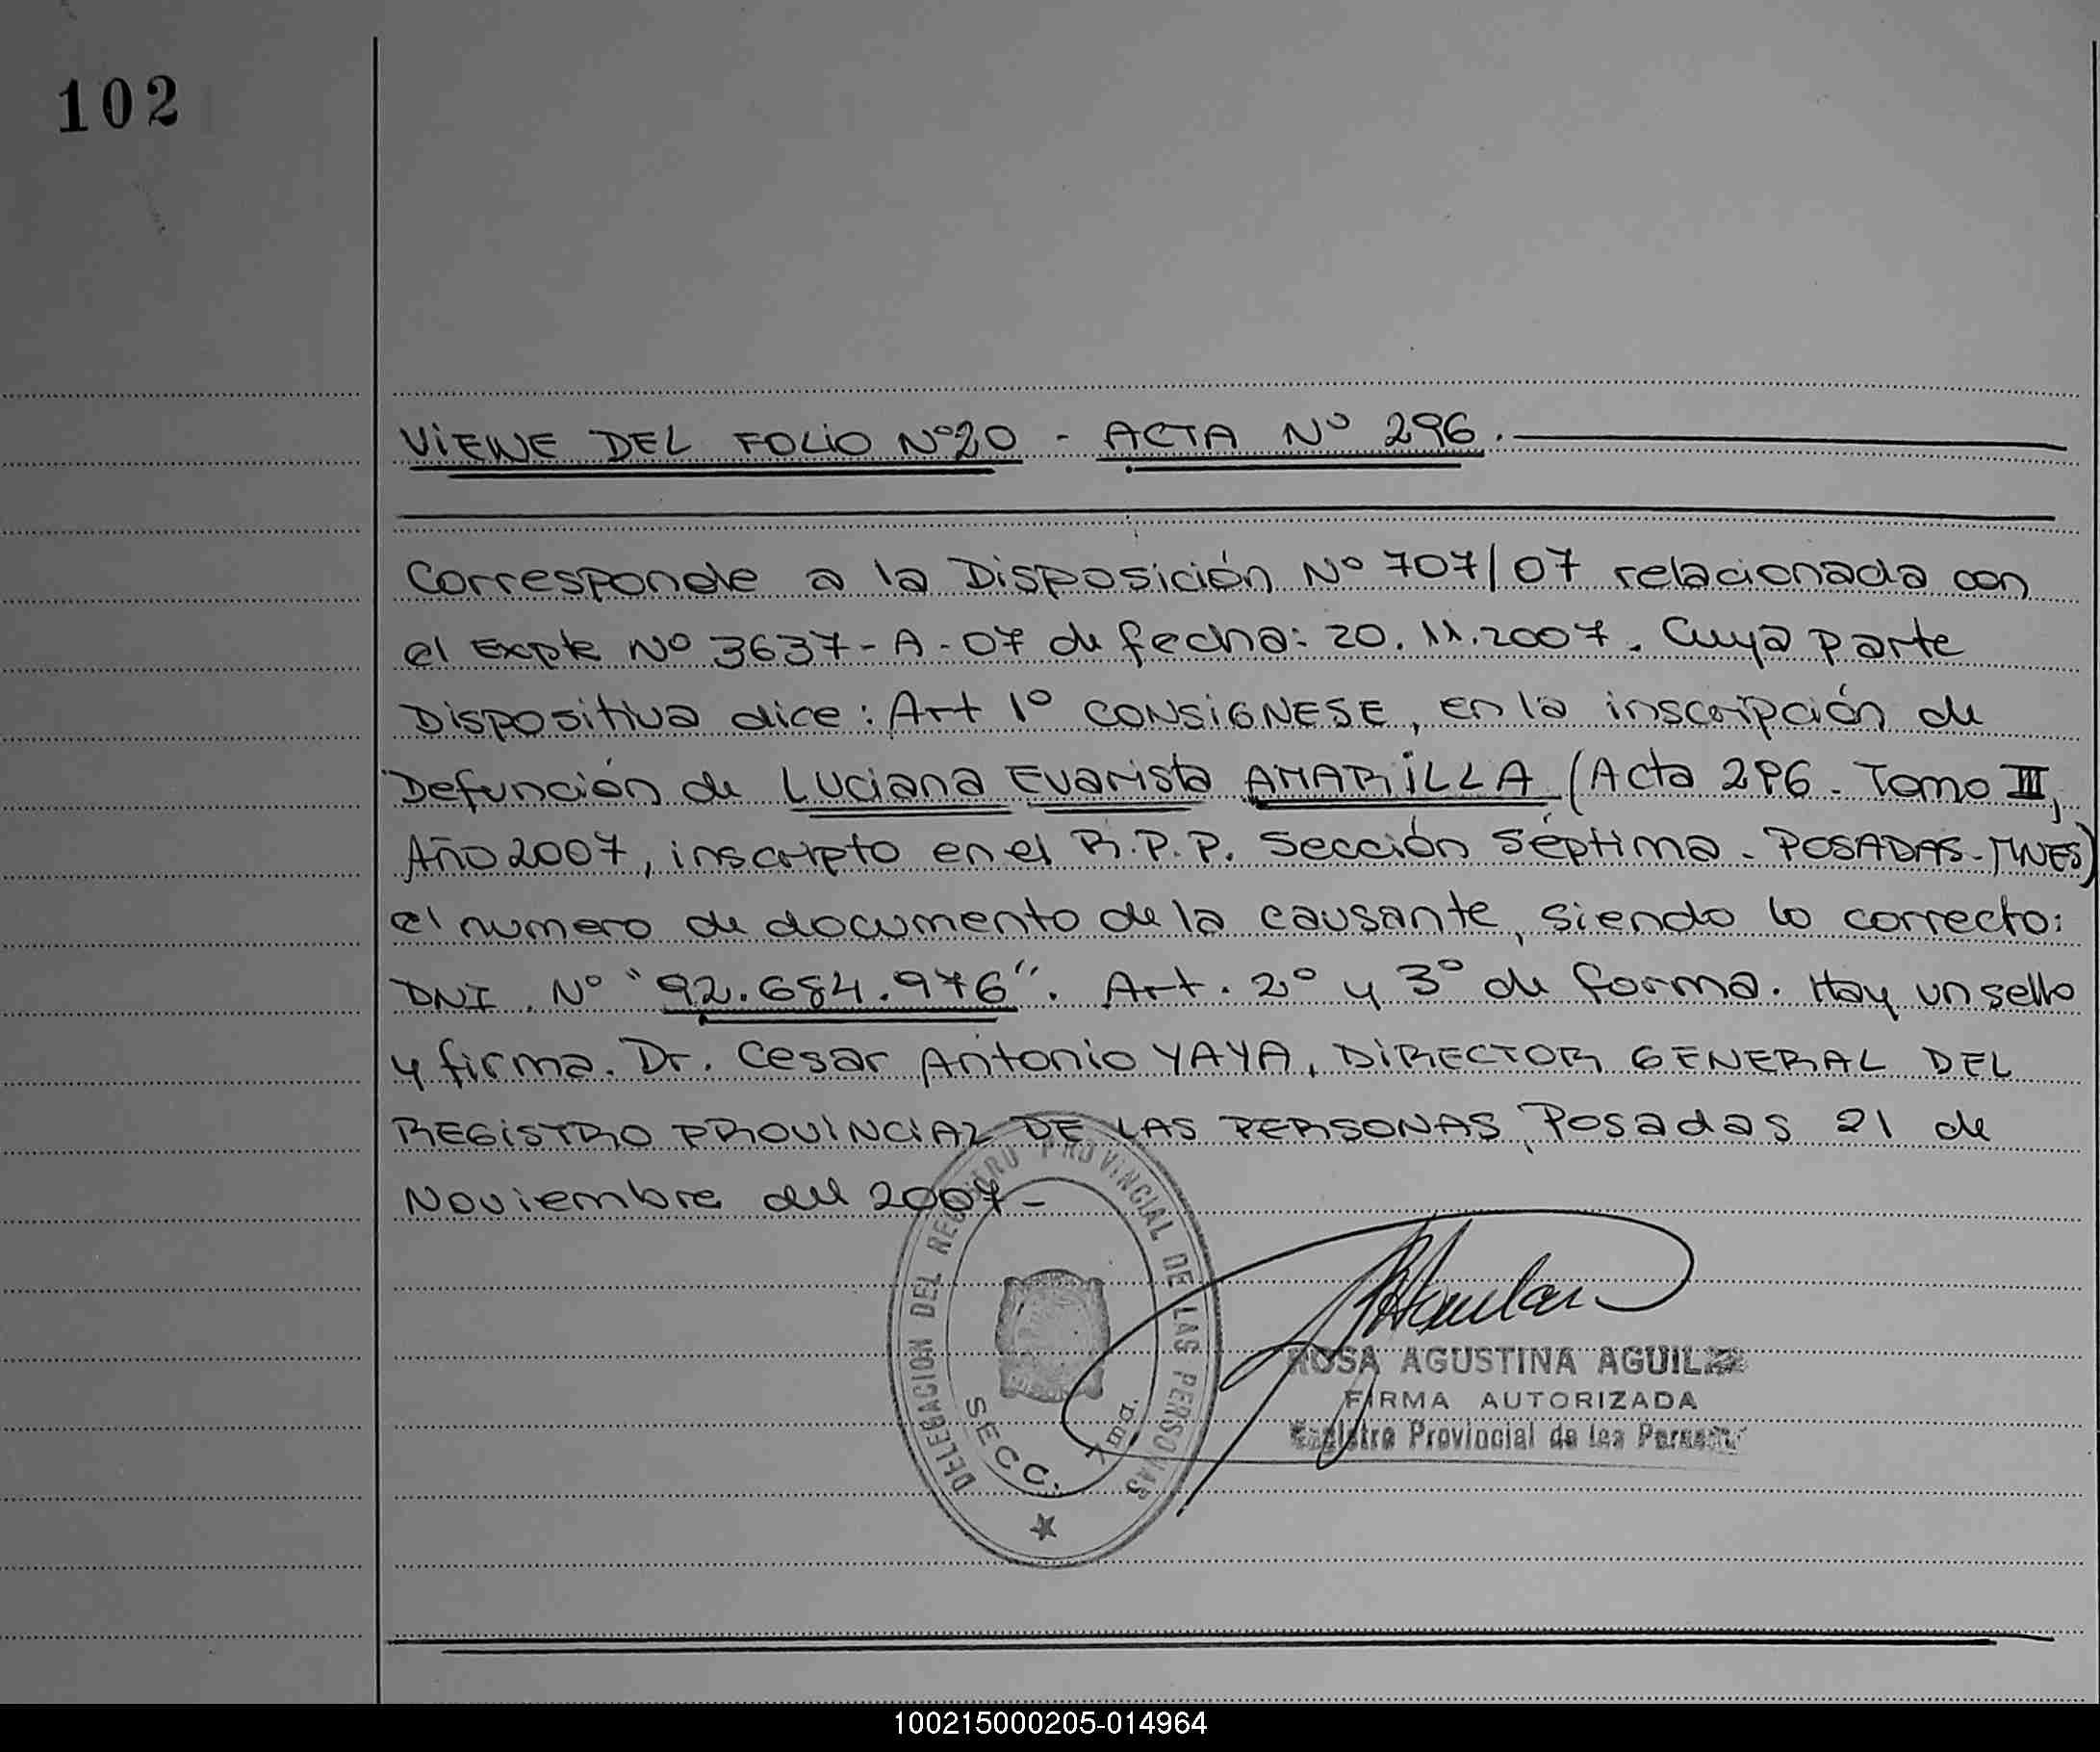 102
VIENE DEL FOLIO Nº20 - ACTA Nº 296.
Corresponde a la Disposición Nº 707/07 relacionada con
el Expte Nº 3637-A-07 de fecha: 20.11.2007. Cuya parte
Dispositiva dice: Art 1º CONSIGNESE, en la inscripción de
Defunción de Luciana Evarista AMARILLA (Acta 296. Tomo III,
Año 2007, inscripto en el R.P.P. Sección Séptima - POSADAS-MNES)
el numero de documento de la causante, siendo lo correcto:
DNI. Nº "92.684.976". Art. 2º y 3º de forma. Hay un sello
y firma. Dr. Cesar Antonio YAYA, DIRECTOR GENERAL DEL
REGISTRO PROVINCIAL DE LAS PERSONAS, Posadas 21 de
Noviembre del 2007-
DELEGACION DEL REGISTRO PROVINCIAL DE LAS PERSONAS
SECC. 7ma.
ROSA AGUSTINA AGUILAR
FIRMA AUTORIZADA
Registro Provincial de las Personas
100215000205-014964